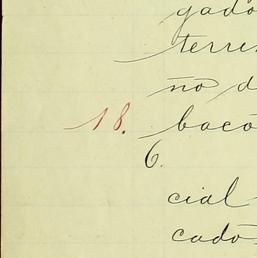 gado
terri
no d
18. baco
6.
cial
cado